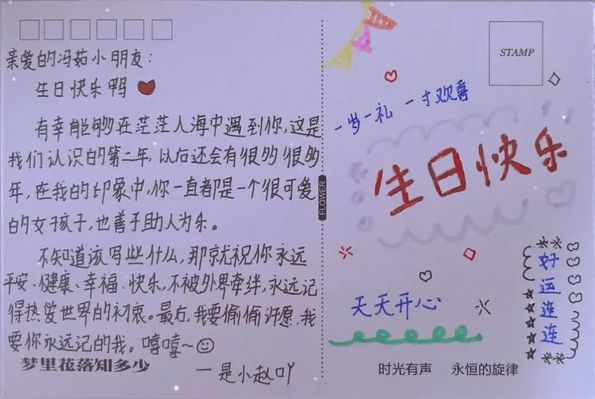 亲爱的冯茹小朋友：
生日快乐鸭
有幸能够在茫茫人海中遇到你，这是
我们认识的第二年，以后还会有很多很多
年，在我的印象中，你一直都是一个很可爱
的女孩子，也善于助人为乐。
不知道该写些什么，那就祝你永远
平安、健康、幸福、快乐，不被外界牵绊，永远记
得热爱世界的初衷。最后，我要偷偷许愿，我
要你永远记的我。嘻嘻~
梦里花落知多少
一是小赵吖
FLOWER
STAMP
一岁一礼 一寸欢喜
生日快乐
好运连连
天天开心
时光有声 永恒的旋律